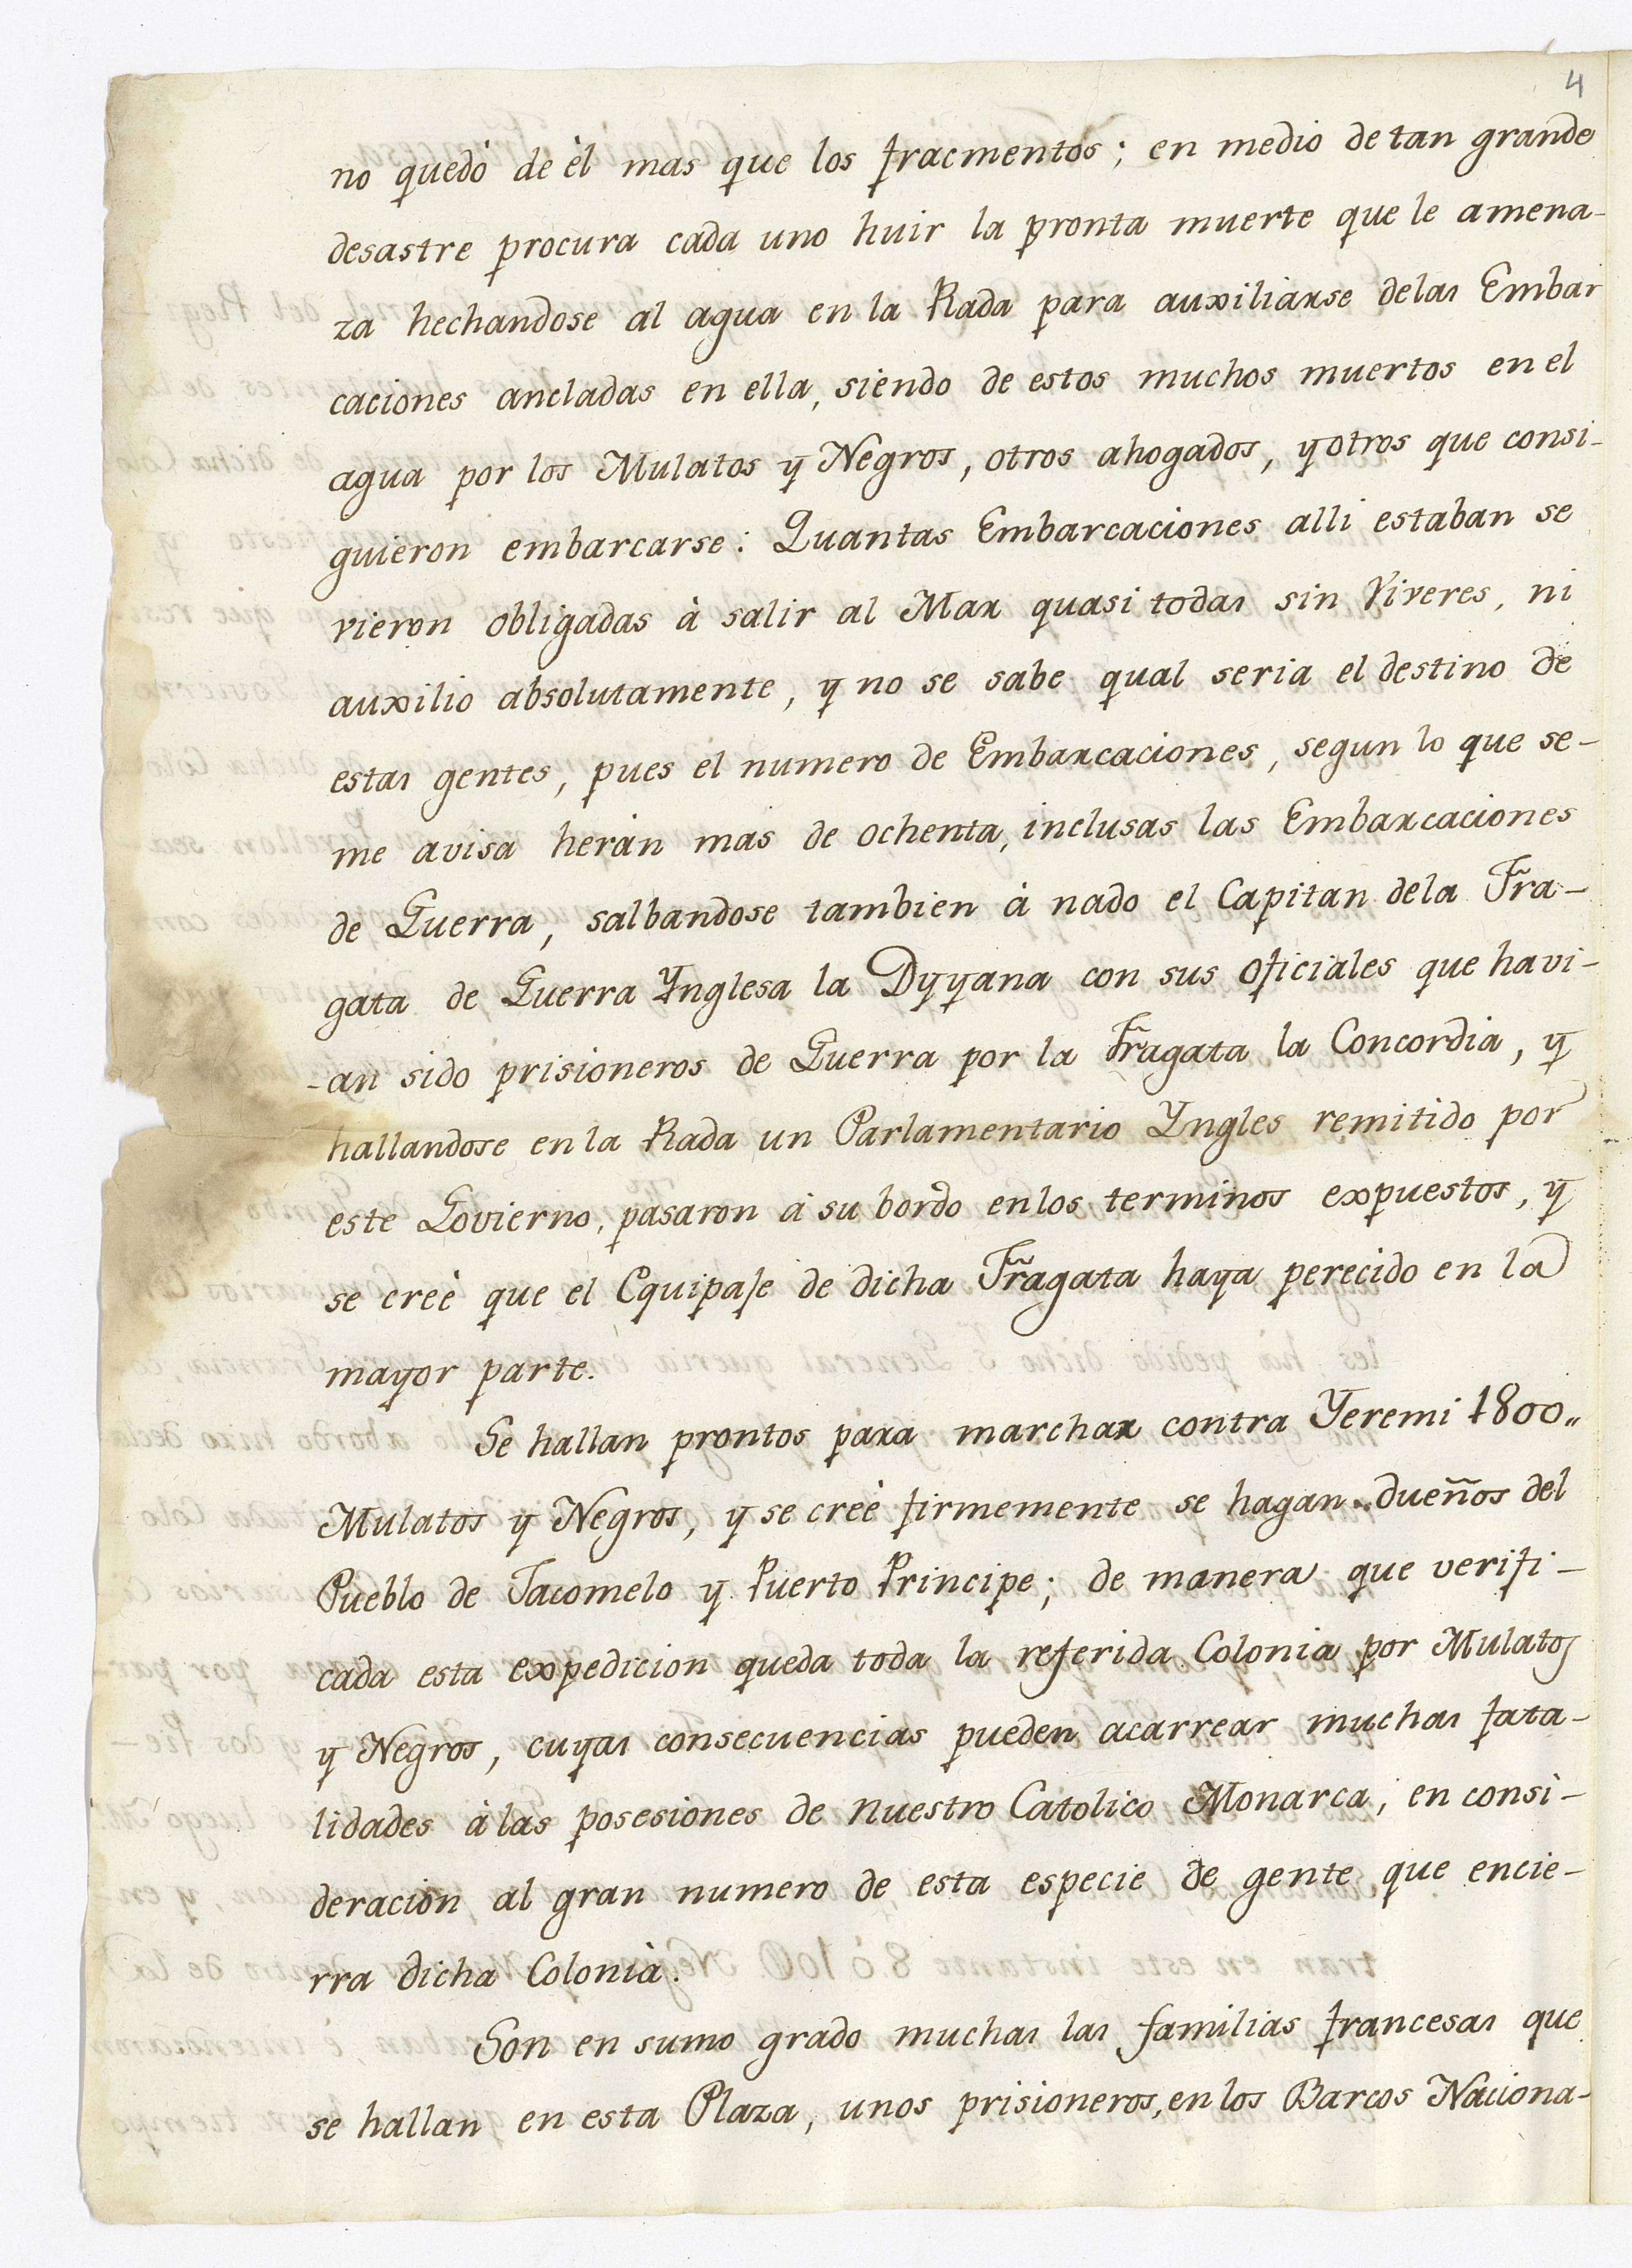 4
no quedò de èl mas que los fracmentos; en medio de tan grande
desastre procura cada uno huir la pronta muerte que le amena-
za hechandose al agua en la Rada para auxiliarse delas Embar
caciones ancladas en ella, siendo de estos muchos muertos en el
agua por los Mulatos y Negros, otros ahogados, y otros que consi-
guieron embarcarse: Quantas Embarcaciones alli estaban se
vieron obligadas à salir al Mar quasi todas sin Viveres, ni
auxilio absolutamente, y no se sabe qual seria el destino de
estas gentes, pues el numero de Embarcaciones, segun lo que se-
me avisa heràn mas de ochenta, inclusas las Embarcaciones
de Guerra, salbandose tambien à nado el Capitan dela Fra-
gata de Guerra Ynglesa la Dyyana con sus oficiales que havi-
-an sido prisioneros de Guerra por la Fragata la Concordia, y
hallandose en la Rada un Parlamentario Yngles remitido por
este Govierno, pasaron à su bordo en los terminos expuestos, y
se creè que el Equipaje de dicha Fragata haya perecido en la
mayor parte.
Se hallan prontos para marchar contra Yeremi 1800„
Mulatos y Negros, y se creè firmemente se hagan dueños del
Pueblo de Jacomelo y Puerto Principe; de manera que verifi-
cada esta expedicion queda toda la referida Colonia por Mulatos
y Negros, cuyas consecuencias pueden acarrear muchas fata-
lidades à las posesiones de nuestro Catolico Monarca, en consi-
deracion al gran numero de esta especie de gente que encie-
rra dicha Colonia.
Son en sumo grado muchas las familias francesas que
se hallan en esta Plaza, unos prisioneros, en los Barcos Naciona-